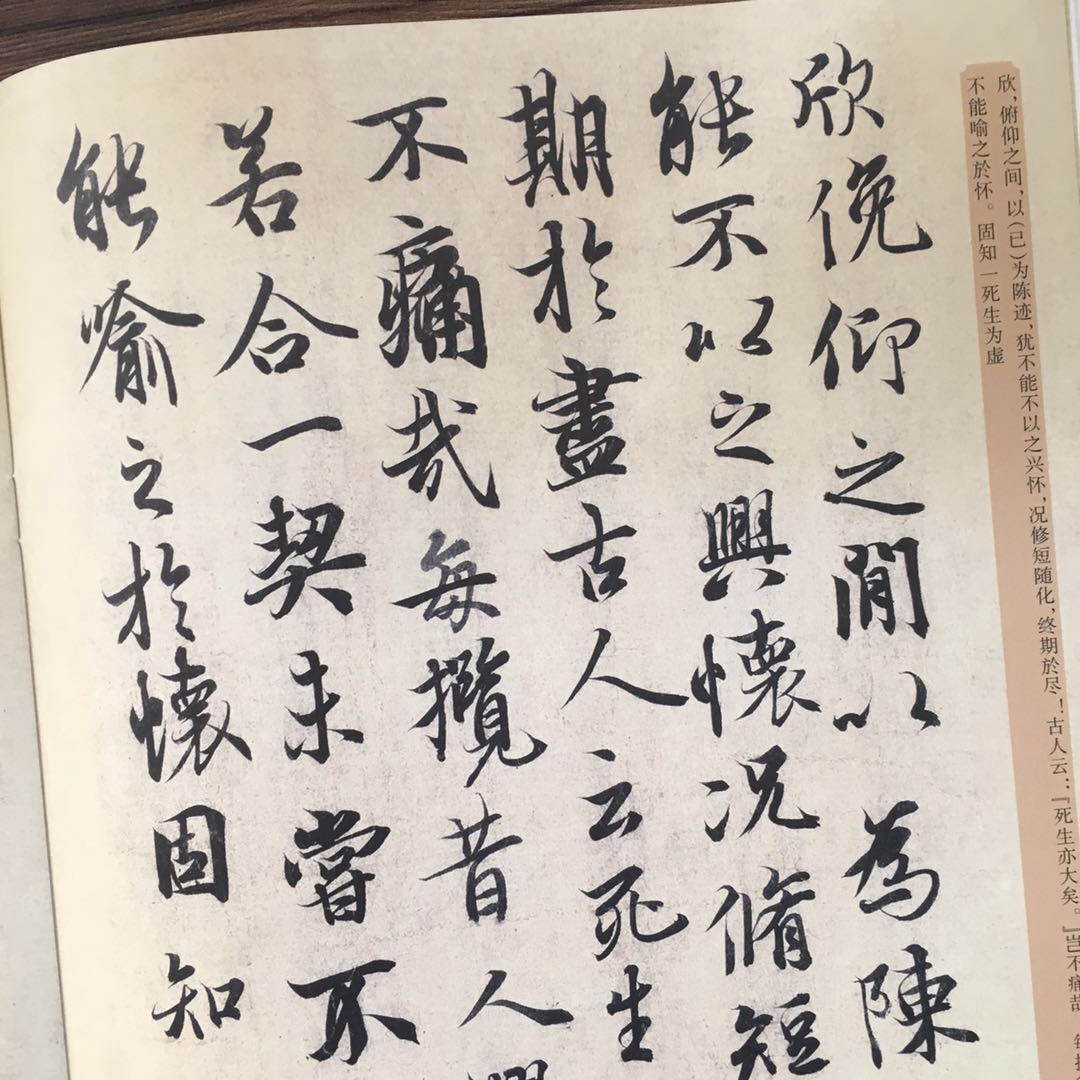 欣,俯仰之间,以(已)为陈迹,犹不能不以之兴怀,况修短随化,终期於尽!古人云:『死生亦大矣。』岂不痛哉
不能喻之於怀。 固知一死生为虚
欣俛仰之閒以為陳
能不以之興懷况脩短
期於盡古人云死生
不痛哉每攬昔人興
若合一契未嘗不
能喻之於懷固知